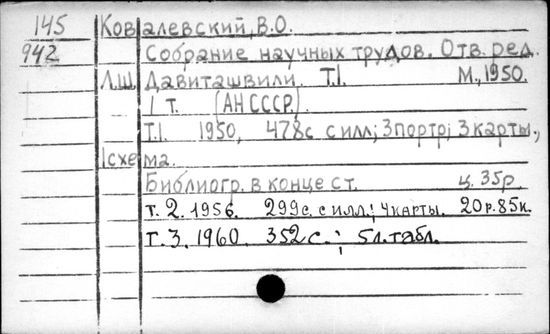 145 Ковалевский, В.О.
942 Собрание научных трудов. Отв. ред.
Л.Ш. Давиташвили. Т.1. М., 1950.
1 т. (АН СССР).
Т.1. 1950, 478с с илл; 3портр; 3карты.,
1схема.
Библиогр. в конце ст. ц. 35р.
т. 2. 1956. 299с. с илл.; 4карты. 20р.85к.
т. 3. 1960. 352с.; 5л.табл.